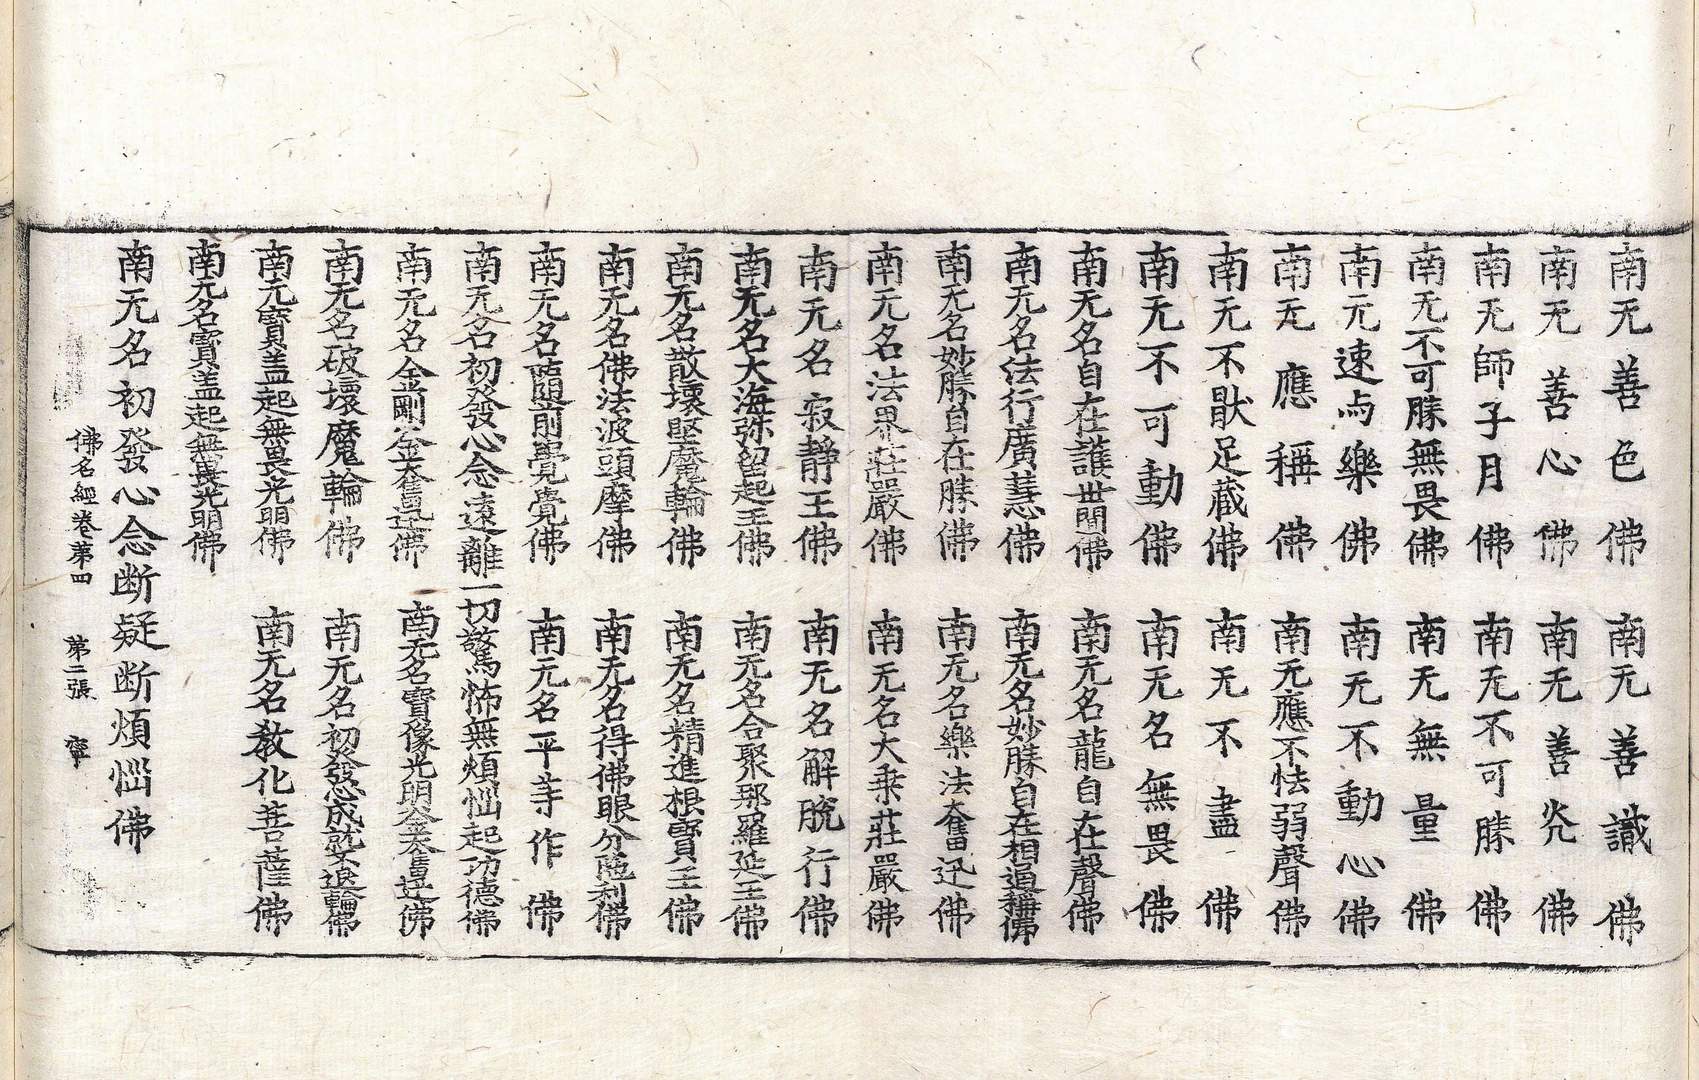 南无善色佛　南无善識佛
南无善心佛　南无善炎佛
南无師子月佛　南无不可勝佛
南无不可勝無畏佛　南无無量佛
南无速与樂佛　南无不動心佛
南无應稱佛　南无應不怯弱聲佛
南无不猒足藏佛　南无不盡佛
南无不可動佛　南无名無畏佛
南无名自在護世間佛　南无名龍自在聲佛
南无名法行廣慧佛　南无名妙勝自在相通稱佛
南无名妙勝自在勝佛　南无名樂法奮迅佛
南无名法界莊嚴佛　南无名大乘莊嚴佛
南无名寂静王佛　南无名解脫行佛
南无名大海弥留起王佛　南无名合聚那羅延王佛
南无名散壞堅魔輪佛　南无名精進根寶王佛
南无名佛法波頭摩佛　南无名得佛眼分陁利佛
南无名隨前覺覺佛　南无名平等作佛
南无名初發心念遠離一切驚怖無煩惱起功德佛
南无名金剛奮迅佛　南无名寶像光明奮迅佛
南无名破壞魔輪佛　南无名初發心成就不退輪佛
南无寶盖起無畏光明佛　南无名教化菩薩佛
南无名寶盖起無畏光明佛
南无名初發心念断疑断煩惱佛
佛名經卷第四　第二張　寧